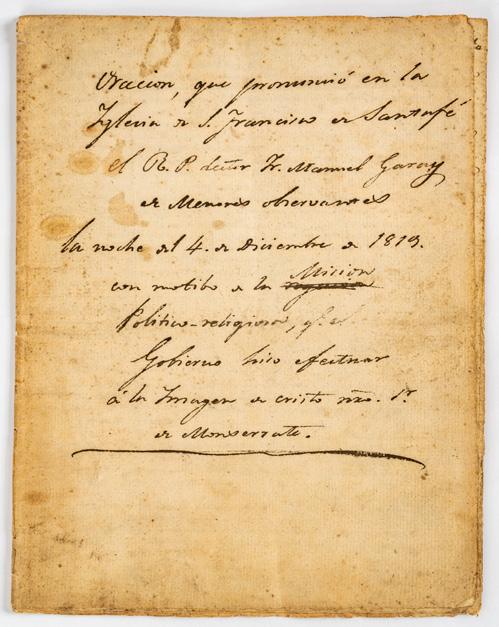 Oracion, que pronunció en la
Iglecia de S. Francisco de Santafé
el R. P. lector Fr. Manuel Garay
de Menores observantes
la noche del 4. de Diciembre de 1819.
con motibo de la Mision
Politico-religiosa, qe. el
Gobierno hiso efectuar
á la Imagen de cristo nro. Sr.
de Monserrate.